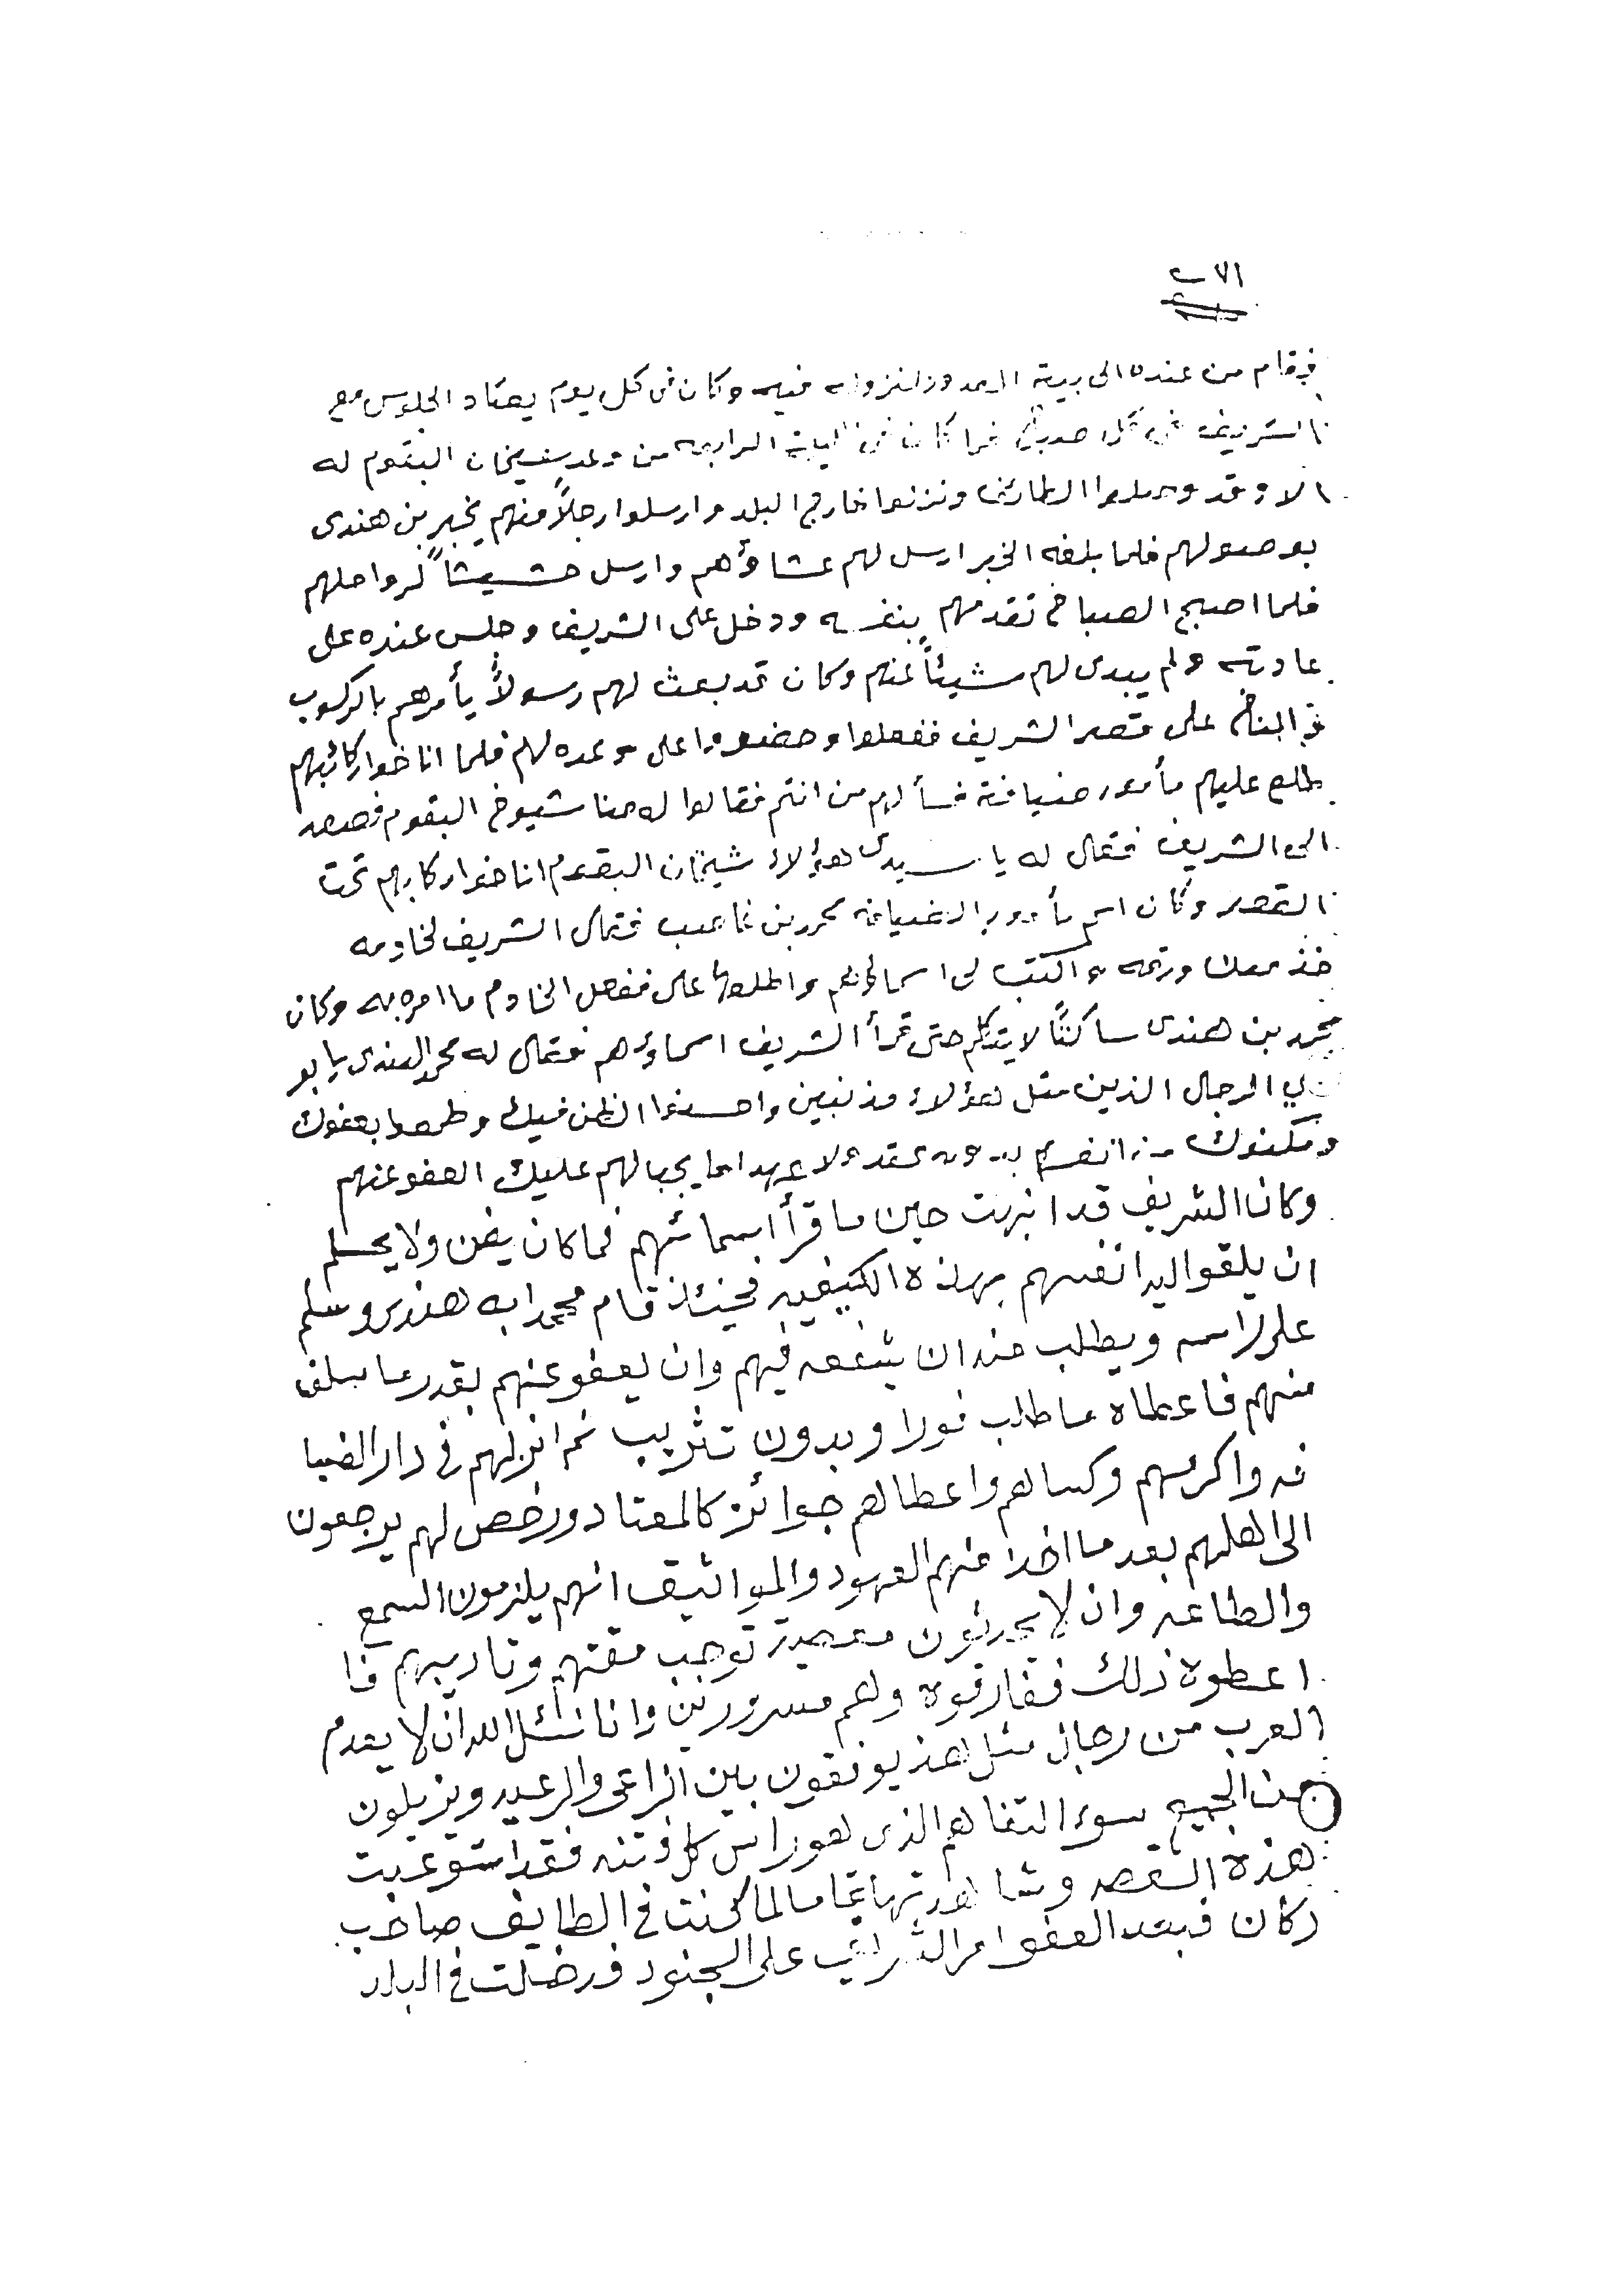 ١٧١
فقام من عنده الى بيته المعد ونزلنزوله فيه وكان فى كل يوم يعتاد الجلوس مع
الشريف فى كل صباح فما كان فى اليلة الرابعه من وعد شيخان البقوم له
الا وقد وصلوا الطائف ونزلوا خارج البلد وارسلوا رجلاً منهم يخبر بن هندى
بوصولهم فلما بلغه الخبر ارسل لهم عشاؤهم وارسل حشيشاً لرواحلهم
فلما اصبح الصباح تقدمهم بنفسه ودخل على الشريف وجلس عنده على
عادته ولم يبدى لهم شيئاً عنهم وكان قد بعث لهم رسولاً يأمرهم بالركوب
والمناخ على قصر الشريف ففعلوا وحضروا على وعده لهم فلما اناخوا ركائبهم
طلع عليهم مأمور ضيافة فسألهم من انتم فقالوا له حنا شيوخ البقوم فصعد
الى الشريف فقال له يا سيدى هؤلاء شيخان البقوم اناخوا ركابهم تحت
القصر وكان اسم مأمور الضيافه محمد بن غاصب فقال الشريف لخادمه
خذ معك ورقه واكتب لى اسماؤهم واطلعها على ففعل الخادم ما امره به وكان
محمد بن هندى ساكنًا لا يتكلم حتى قرأ الشريف اسماؤهم فقال له محمد الهندى يا بو
الرجال الذين مثل هؤلاء مذنبين واحسنوا الظن فيك وطمعوا بعفوك
ومكنوك من انفسهم بدون عقد ولا عهد اما يجبا لهم عليك العفو عنهم
وكان الشريف قد انبهت حين ما قرأ اسمائهم فما كان يظن ولا يحلم
ان يلقوا اليه انفسهم بهذه الكيفيه فحينئذ قام محمد ابه هندى وسلم
على راسه ويطلب منه ان يشفعه فيهم وان يعفو عنهم بقدر ما سلف
منهم فاعطاه ما طلب فورا وبدون تثريب ثم انزلهم فى دار الضيا
فه واكرمهم وكساهم واعطاهم جوائز كالمعتاد ورخص لهم يرجعون
الى اهلهم بعد ما اخذ منهم العهود والمواثيق انهم يلزمون السمع
والطاعه وان لا يحدثون معصية توجب مقتهم وتاديبهم فا
اعطوه ذلك ففارقوه وهم مسرورين وانا نسئل الله ان لا يعدم
العرب من رجال مثل هذ يوفقون بين الراعى والرعيه ويزيلون
من الجميع سوء التفاهم الذى هو راس كل فتنه فقد استوعبت
هذه القصه وشاهدتها تماما لما كنت فى الطايف صاحب
ركان فبعد العفو امر الشريف على الجنود فرخلت فى البلاد